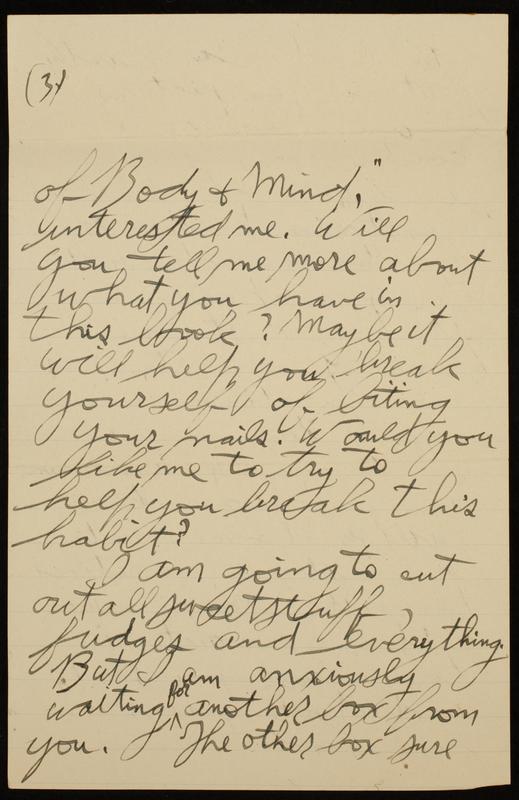 (3)
of Body & Mind,"
interested me. Will
you tell me more about
what you have in
this book? Maybe it
will help you break
yourself of biting
your nails. Would you
like me to try to
help you break this
habit?
I am going to cut
out all sweet stuff,
fudges and everything.
But I am anxiously
waiting for another box from
you. The other box sure